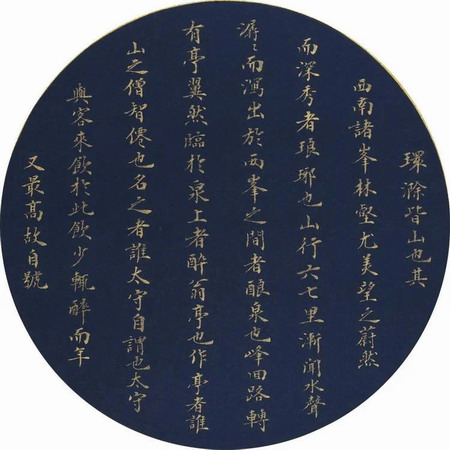 環滁皆山也其
西南諸峯林壑尤美望之蔚然
而深秀者琅琊也山行六七里漸聞水聲
潺〻而瀉出於兩峯之間者釀泉也峰回路轉
有亭翼然臨於泉上者醉翁亭也作亭者誰
山之僧智僊也名之者誰太守自謂也太守
與客來飲於此飲少輒醉而年
又最高故自號